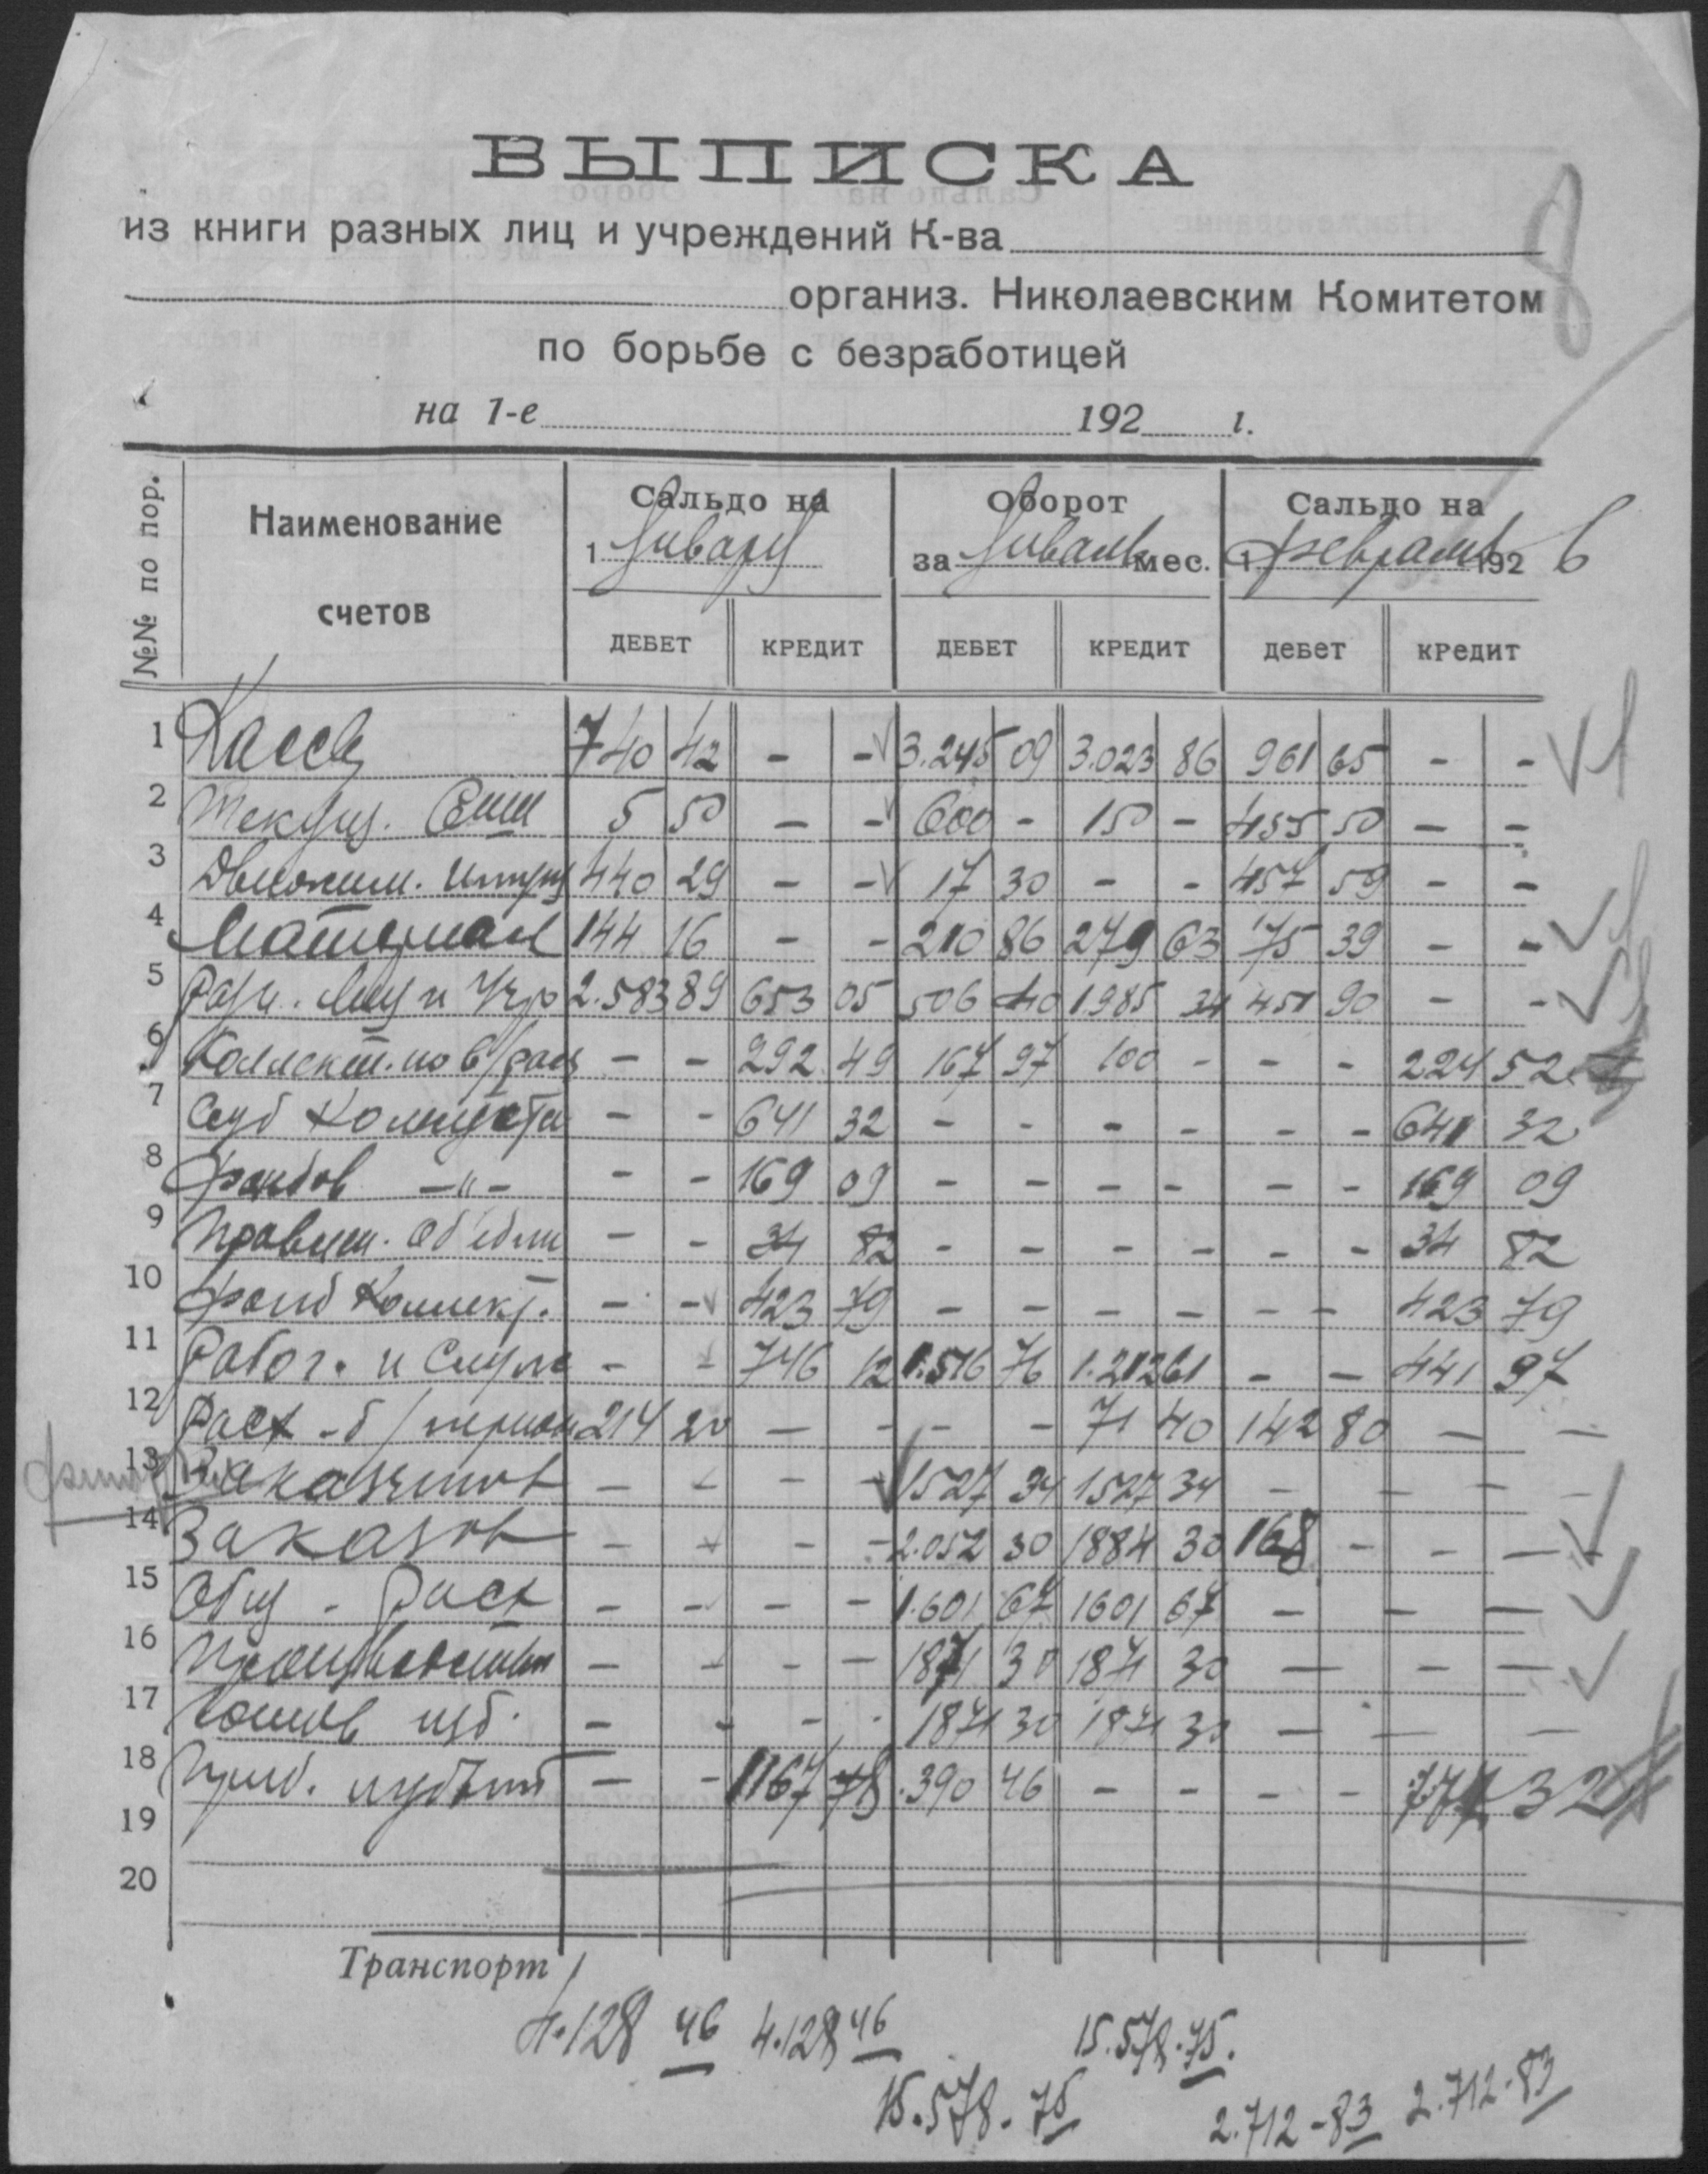 ВЫПИСКА
из книги разных лиц и учреждений К-ва
организ. Николаевским Комитетом
по борьбе с безработицей
на 1-е 192 г.
8
№№ по пор. Наименование счетов Сальдо на 1 Январу Оборот за Январь мес. Сальдо на 1 февраль 192 6
ДЕБЕТ КРЕДИТ ДЕБЕТ КРЕДИТ ДЕБЕТ КРЕДИТ
1 Касса 740 42 - - 3.245 09 3.023 86 961 65 - -
2 Текущ. Счет 5 50 - - 600 - 150 - 455 50 - -
3 Движим. Имущ 440 29 - - 17 30 - - 457 59 - -
4 Материал 144 16 - - 210 86 279 63 75 39 - -
5 Разн. Лиц и Учр 2.583 89 653 05 506 40 1985 34 451 90 - -
6 Коллект. по в/расч - - 292 49 167 97 100 - - - 224 52
7 Суб Комитета - - 641 32 - - - - - - 641 32
8 Фондов -"- - - 169 09 - - - - - - 169 09
9 Правлен. Об'един - - 34 82 - - - - - - 34 82
10 Фонд Коллект. - - 423 79 - - - - - - 423 79
11 Рабоч. и Служ - - 746 12 1.516 76 1.212 61 - - 441 97
12 Расх - б/ 214 20 - - - - 71 40 142 80 - -
13 Заказчиков - - - - 1527 34 1527 34 - - - -
14 Заказов - - - - 2.052 30 1884 30 168 - - -
15 Общ - Расх - - - - 1.601 67 1601 67 - - - -
16 Производства - - - - 1871 30 1871 30 - - - -
17 Готов изд. - - - - 1871 30 1871 30 - - - -
18 Приб. и убытк - - 1167 78 390 46 - - - - 777 32
19
20
Транспорт
4.128 46 4.128 46 15.578.75.
15.578.75 2.712-83 2.712-83